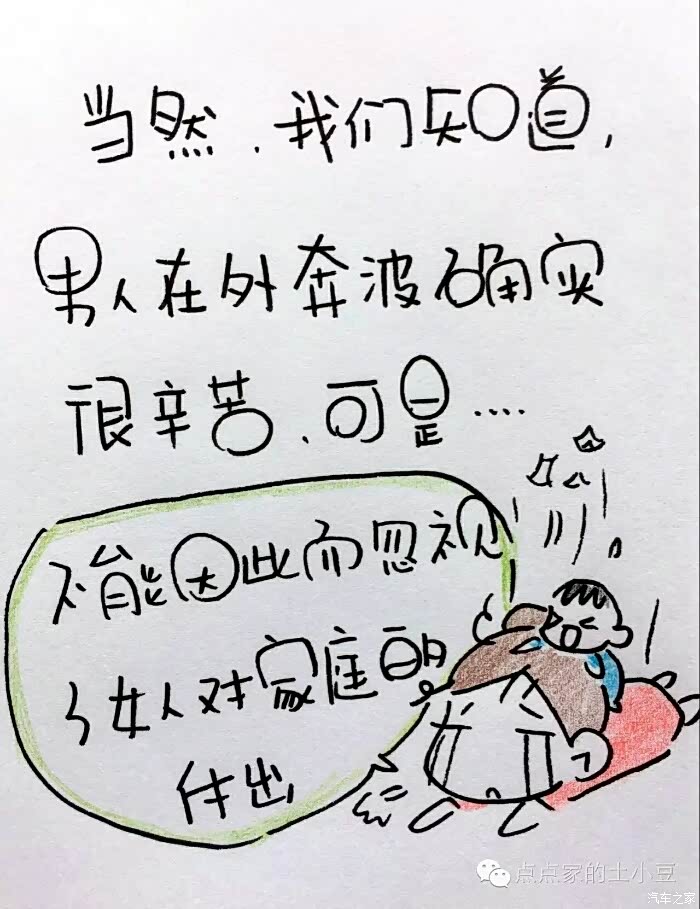 当然、我们知道,
男人在外奔波确实
很辛苦、可是....
不能因此而忽视
了女人对家庭的
付出
点点家的土小豆
汽车之家